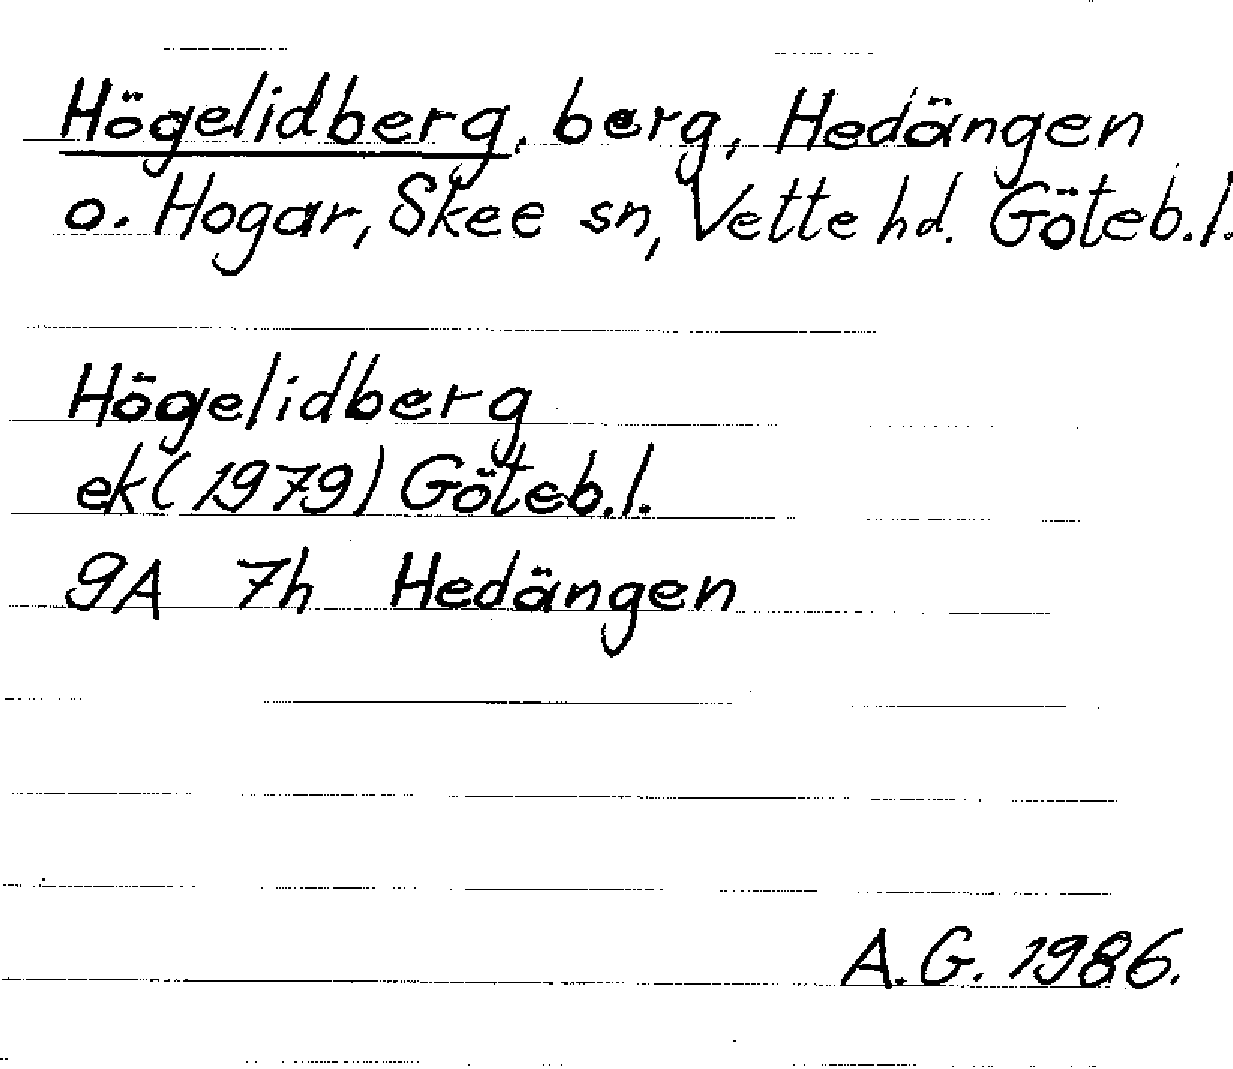 Högelidberg, berg, Hedängen
o. Hogar, Skee sn, Vette hd. Göteb.l.
Högelidberg
ek (1979) Göteb.l.
9A 7h Hedängen
A.G. 1986.